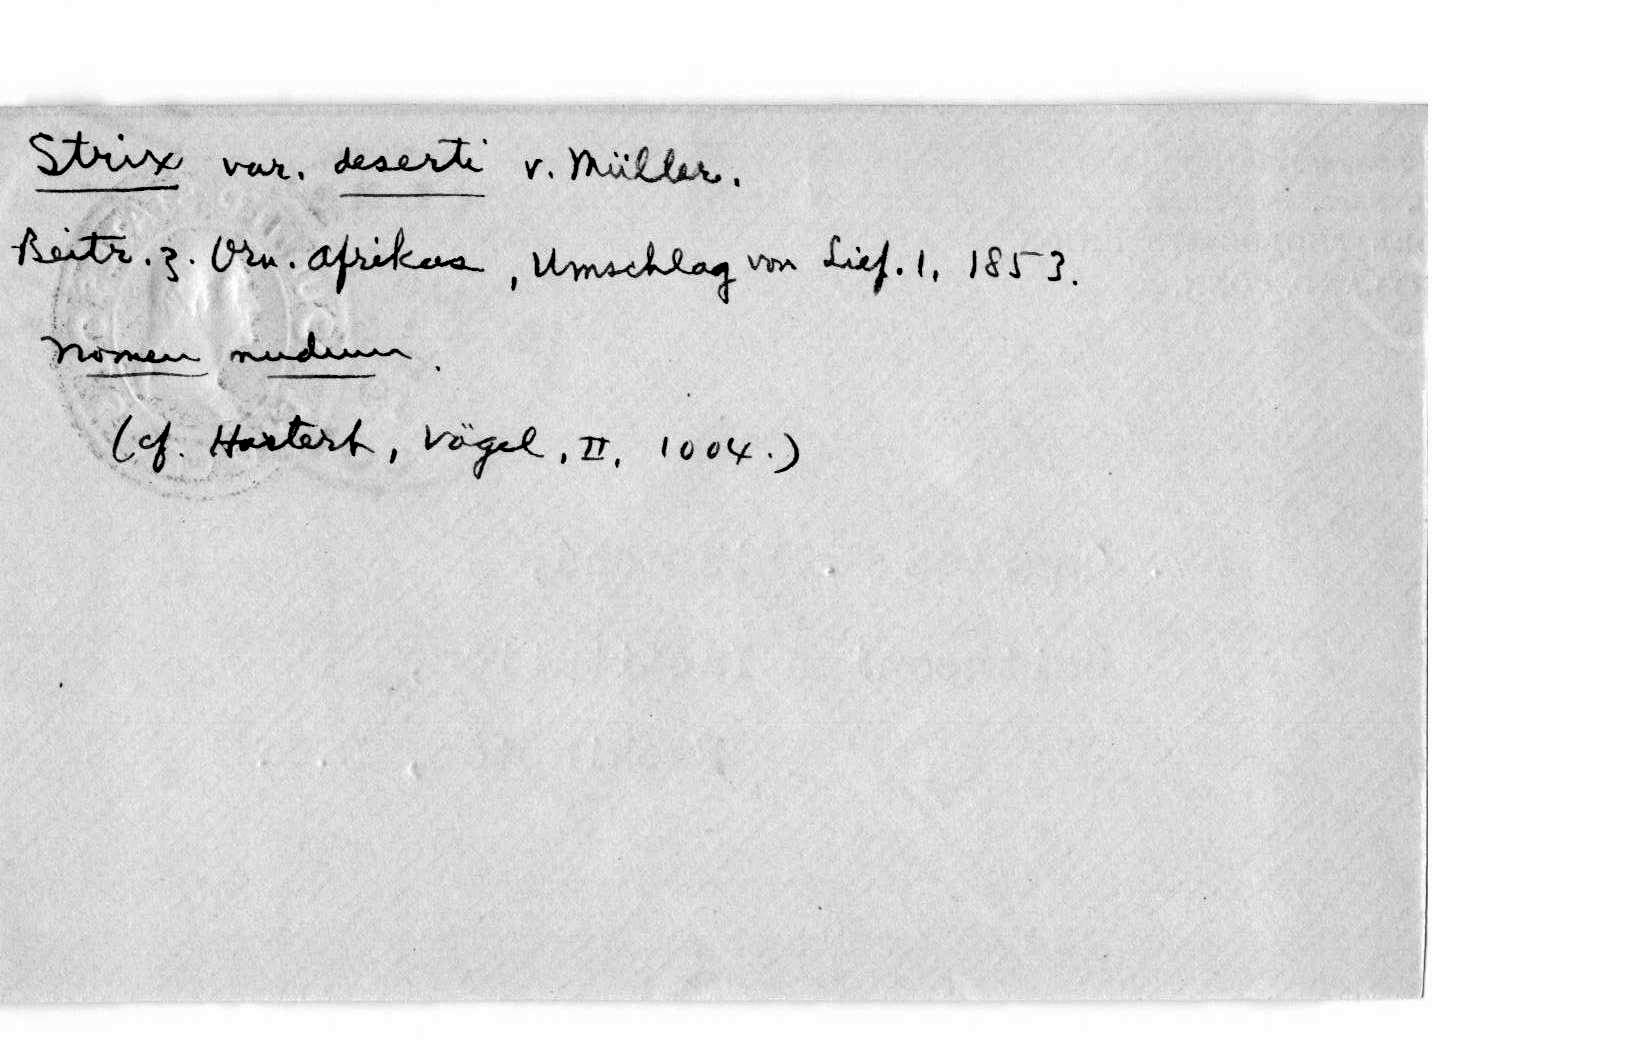 Strix var. deserti v. Müller.
Beitr. z. Orn. Afrikas, Umschlag von Lief. 1, 1853.
Nomen nudum.
(cf. Hartert, Vögel, II, 1004.)